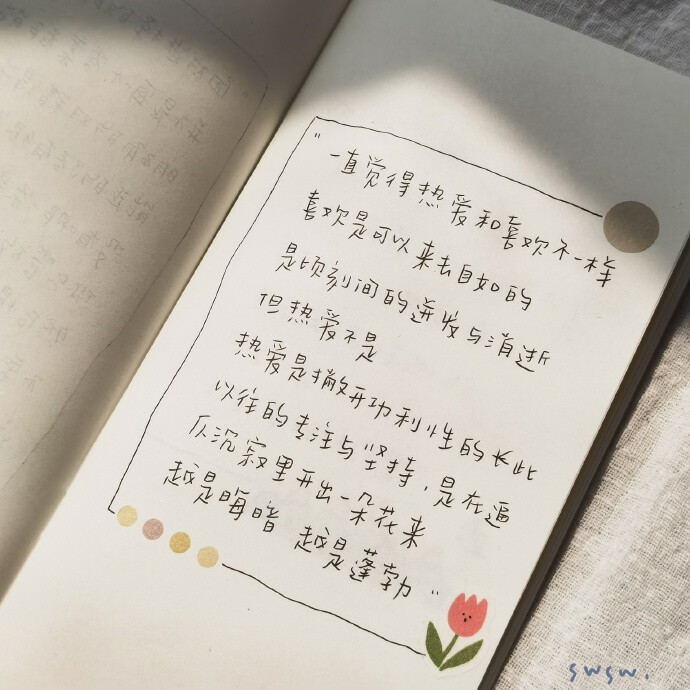 "一直觉得热爱和喜欢不一样
喜欢是可以来去自如的
是顷刻间的迸发与消逝
但热爱不是
热爱是撇开功利性的长此
以往的专注与坚持，是在逼
仄沉寂里开出一朵花来
越是晦暗 越是蓬勃"
swsw.